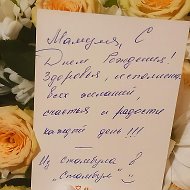 Мамуля, С
Днем Рождения!
Здоровья, исполнения
всех желаний
счастья и радости
каждый день !!!
Из Стамбула в
"Стамбул" :)